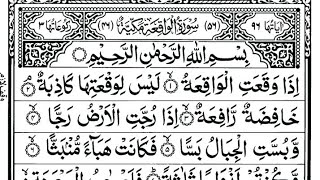 اٰیاتها ٩٦ (٥٦) سُوْرَةُ الْوَاقِعَةِ مَكِّيَّةٌ (٤٦) رکوعاتها ٣
بِسْمِ اللّٰهِ الرَّحْمٰنِ الرَّحِيْمِ
اِذَا وَقَعَتِ الْوَاقِعَةُ ۙ﴿١﴾ لَيْسَ لِوَقْعَتِهَا كَاذِبَةٌ ۘ﴿٢﴾
خَافِضَةٌ رَّافِعَةٌ ۙ﴿٣﴾ اِذَا رُجَّتِ الْاَرْضُ رَجًّا ۙ﴿٤﴾
وَّبُسَّتِ الْجِبَالُ بَسًّا ۙ﴿٥﴾ فَكَانَتْ هَبَآءً مُّنْۢبَثًّا ۙ﴿٦﴾